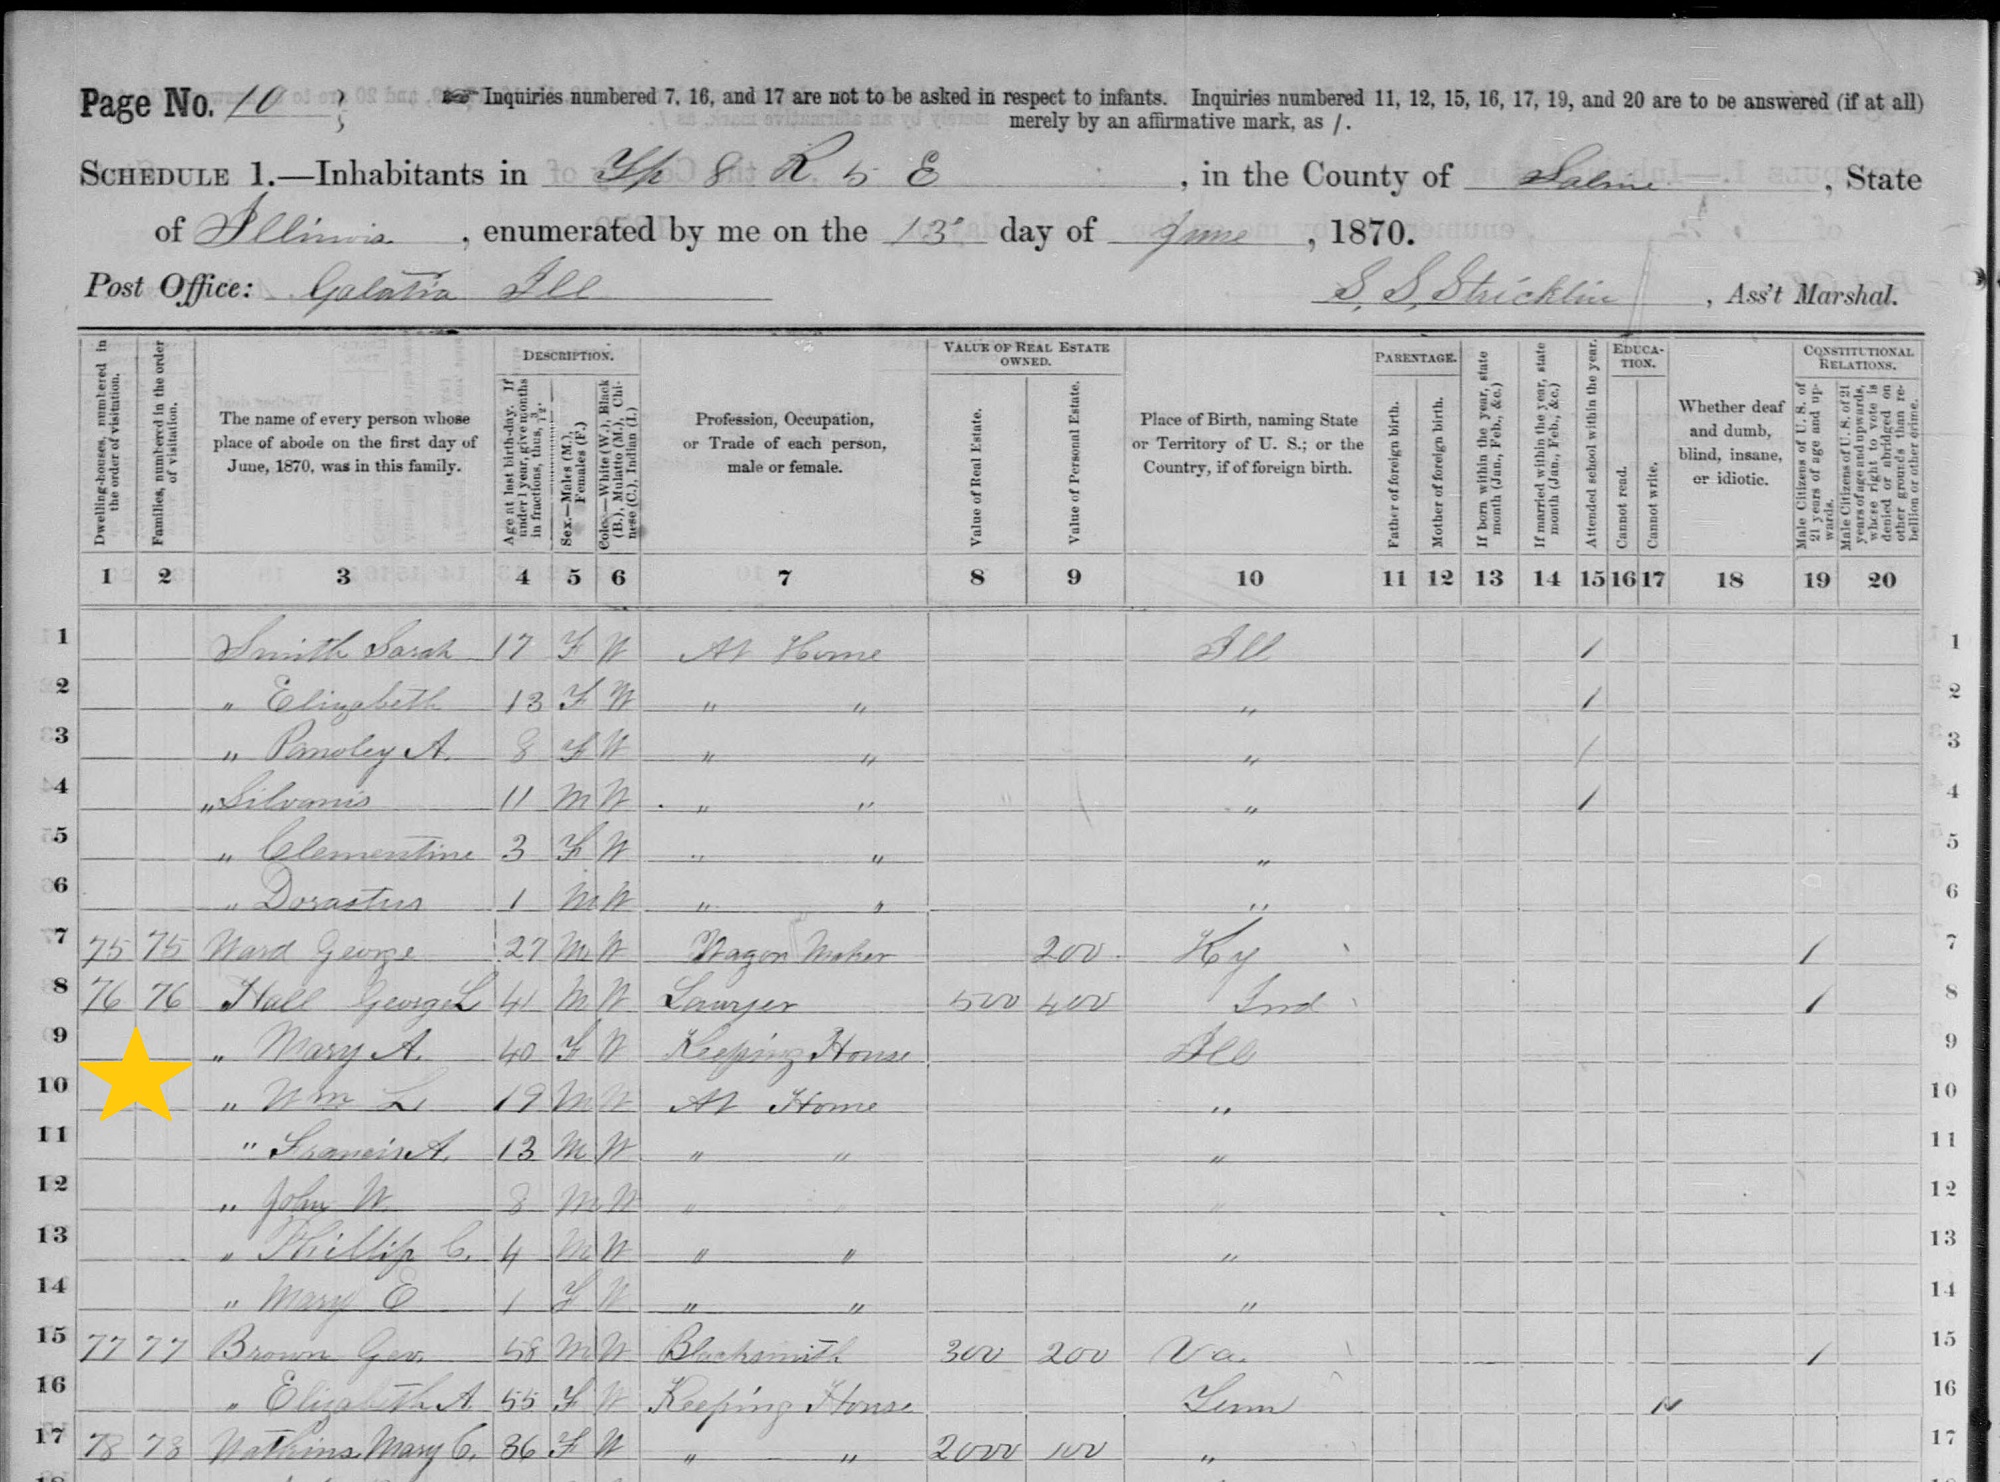 Page No. 10
Inquiries numbered 7, 16, and 17 are not to be asked in respect to infants. Inquiries numbered 11, 12, 15, 16, 17, 19, and 20 are to be answered (if at all)
merely by an affirmative mark, as /.
SCHEDULE 1.—Inhabitants in Tp 8 R 5 E, in the County of Saline, State
of Illinois, enumerated by me on the 13 day of June, 1870.
Post Office: Galatia Ill S. S. Stricklin, Ass't Marshal.
Dwelling-houses, numbered in the order of visitation.
Families, numbered in the order of visitation.
The name of every person whose place of abode on the first day of June, 1870, was in this family.
DESCRIPTION.
Age at last birth-day. If under 1 year, give months in fractions, thus, 3/12.
Sex.—Males (M.), Females (F.)
Color.—White (W.), Black (B.), Mulatto (M.), Chinese (C.), Indian (I.)
Profession, Occupation, or Trade of each person, male or female.
VALUE OF REAL ESTATE OWNED.
Value of Real Estate.
Value of Personal Estate.
Place of Birth, naming State or Territory of U. S.; or the Country, if of foreign birth.
PARENTAGE.
Father of foreign birth.
Mother of foreign birth.
If born within the year, state month (Jan., Feb., &c.)
If married within the year, state month (Jan., Feb., &c.)
Attended school within the year.
EDUCATION.
Cannot read.
Cannot write.
Whether deaf and dumb, blind, insane, or idiotic.
CONSTITUTIONAL RELATIONS.
Male Citizens of U. S. of 21 years of age and upwards.
Male Citizens of U. S. of 21 years of age and upwards, whose right to vote is denied or abridged on other grounds than rebellion or other crime.
1 2 3 4 5 6 7 8 9 10 11 12 13 14 15 16 17 18 19 20
1 Smith Sarah 17 F W At Home Ill / 1
2 " Elizabeth 13 F W " " " / 2
3 " A. 8 F W " " " / 3
4 " Silvanis 11 M W " " " / 4
5 " Clementine 3 F W " " " 5
6 " Dorastus 1 M W " " " 6
7 75 75 Ward George 27 M W Wagon Maker 200 Ky / 7
8 76 76 Hall George L 41 M W Lawyer 500 400 Ind / 8
9 " Mary A. 40 F W Keeping House Ill 9
10 " Wm L 19 M W At Home " 10
11 " Francis A. 13 M W " " " 11
12 " John W. 8 M W " " " 12
13 " Phillip C. 4 M W " " " 13
14 " Mary E 1 F W " " " 14
15 77 77 Brown Geo. 58 M W Blacksmith 300 200 Va. / 15
16 " Elizabeth A 55 F W Keeping House Tenn 16
17 78 78 Watkins Mary C. 36 F W " " 2000 100 " 17